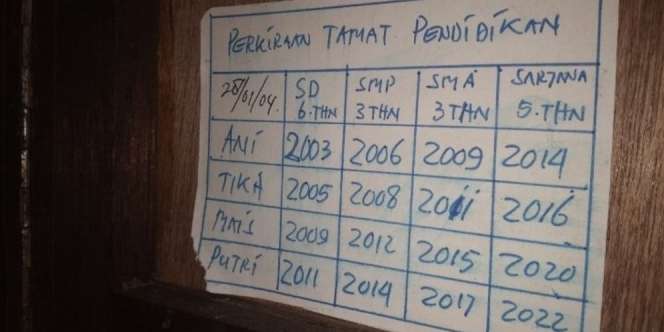 PERKIRAAN TAMAT PENDIDIKAN
28/01/04. SD 6.THN SMP 3 THN SMA 3 THN SARJANA 5.THN
ANI 2003 2006 2009 2014
TIKA 2005 2008 2011 2016
MAIS 2009 2012 2015 2020
PUTRI 2011 2014 2017 2022